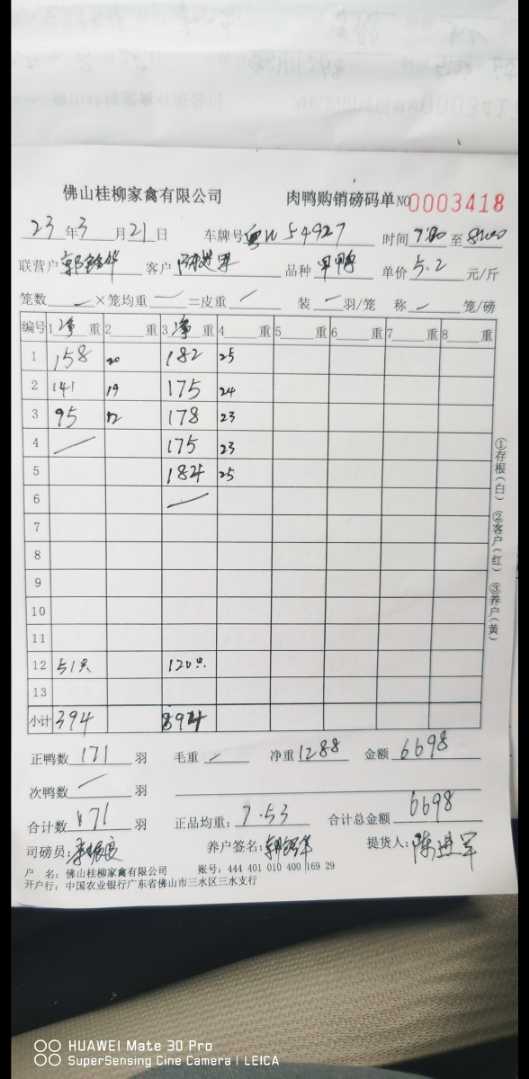 佛山桂柳家禽有限公司 肉鸭购销磅码单 NO0003418
23年3月21日 车牌号粤 54927 时间7:00至8:00
联营户 客户陈进军 品种甲鸭 单价5.2元/斤
笼数 ×笼均重 =皮重 装 羽/笼 称 笼/磅
编号 1净重 2 重 3净重 4 重 5 重 6 重 7 重 8 重
1 158 20 182 25
2 141 19 175 24
3 95 12 178 23
4 175 23
5 184 25
6
7
8
9
10
11
12 51只 120只
13
小计 394 894
正鸭数171羽 毛重 净重1288 金额6698
次鸭数 羽
合计数171羽 正品均重:7.53 合计总金额6698
司磅员: 养户签名: 提货人:陈进军
户 名:佛山桂柳家禽有限公司 账号:444 401 010 400 169 29
开户行:中国农业银行广东省佛山市三水区三水支行
①存根(白) ②客户(红) ③养户(黄)
HUAWEI Mate 30 Pro
SuperSensing Cine Camera | LEICA